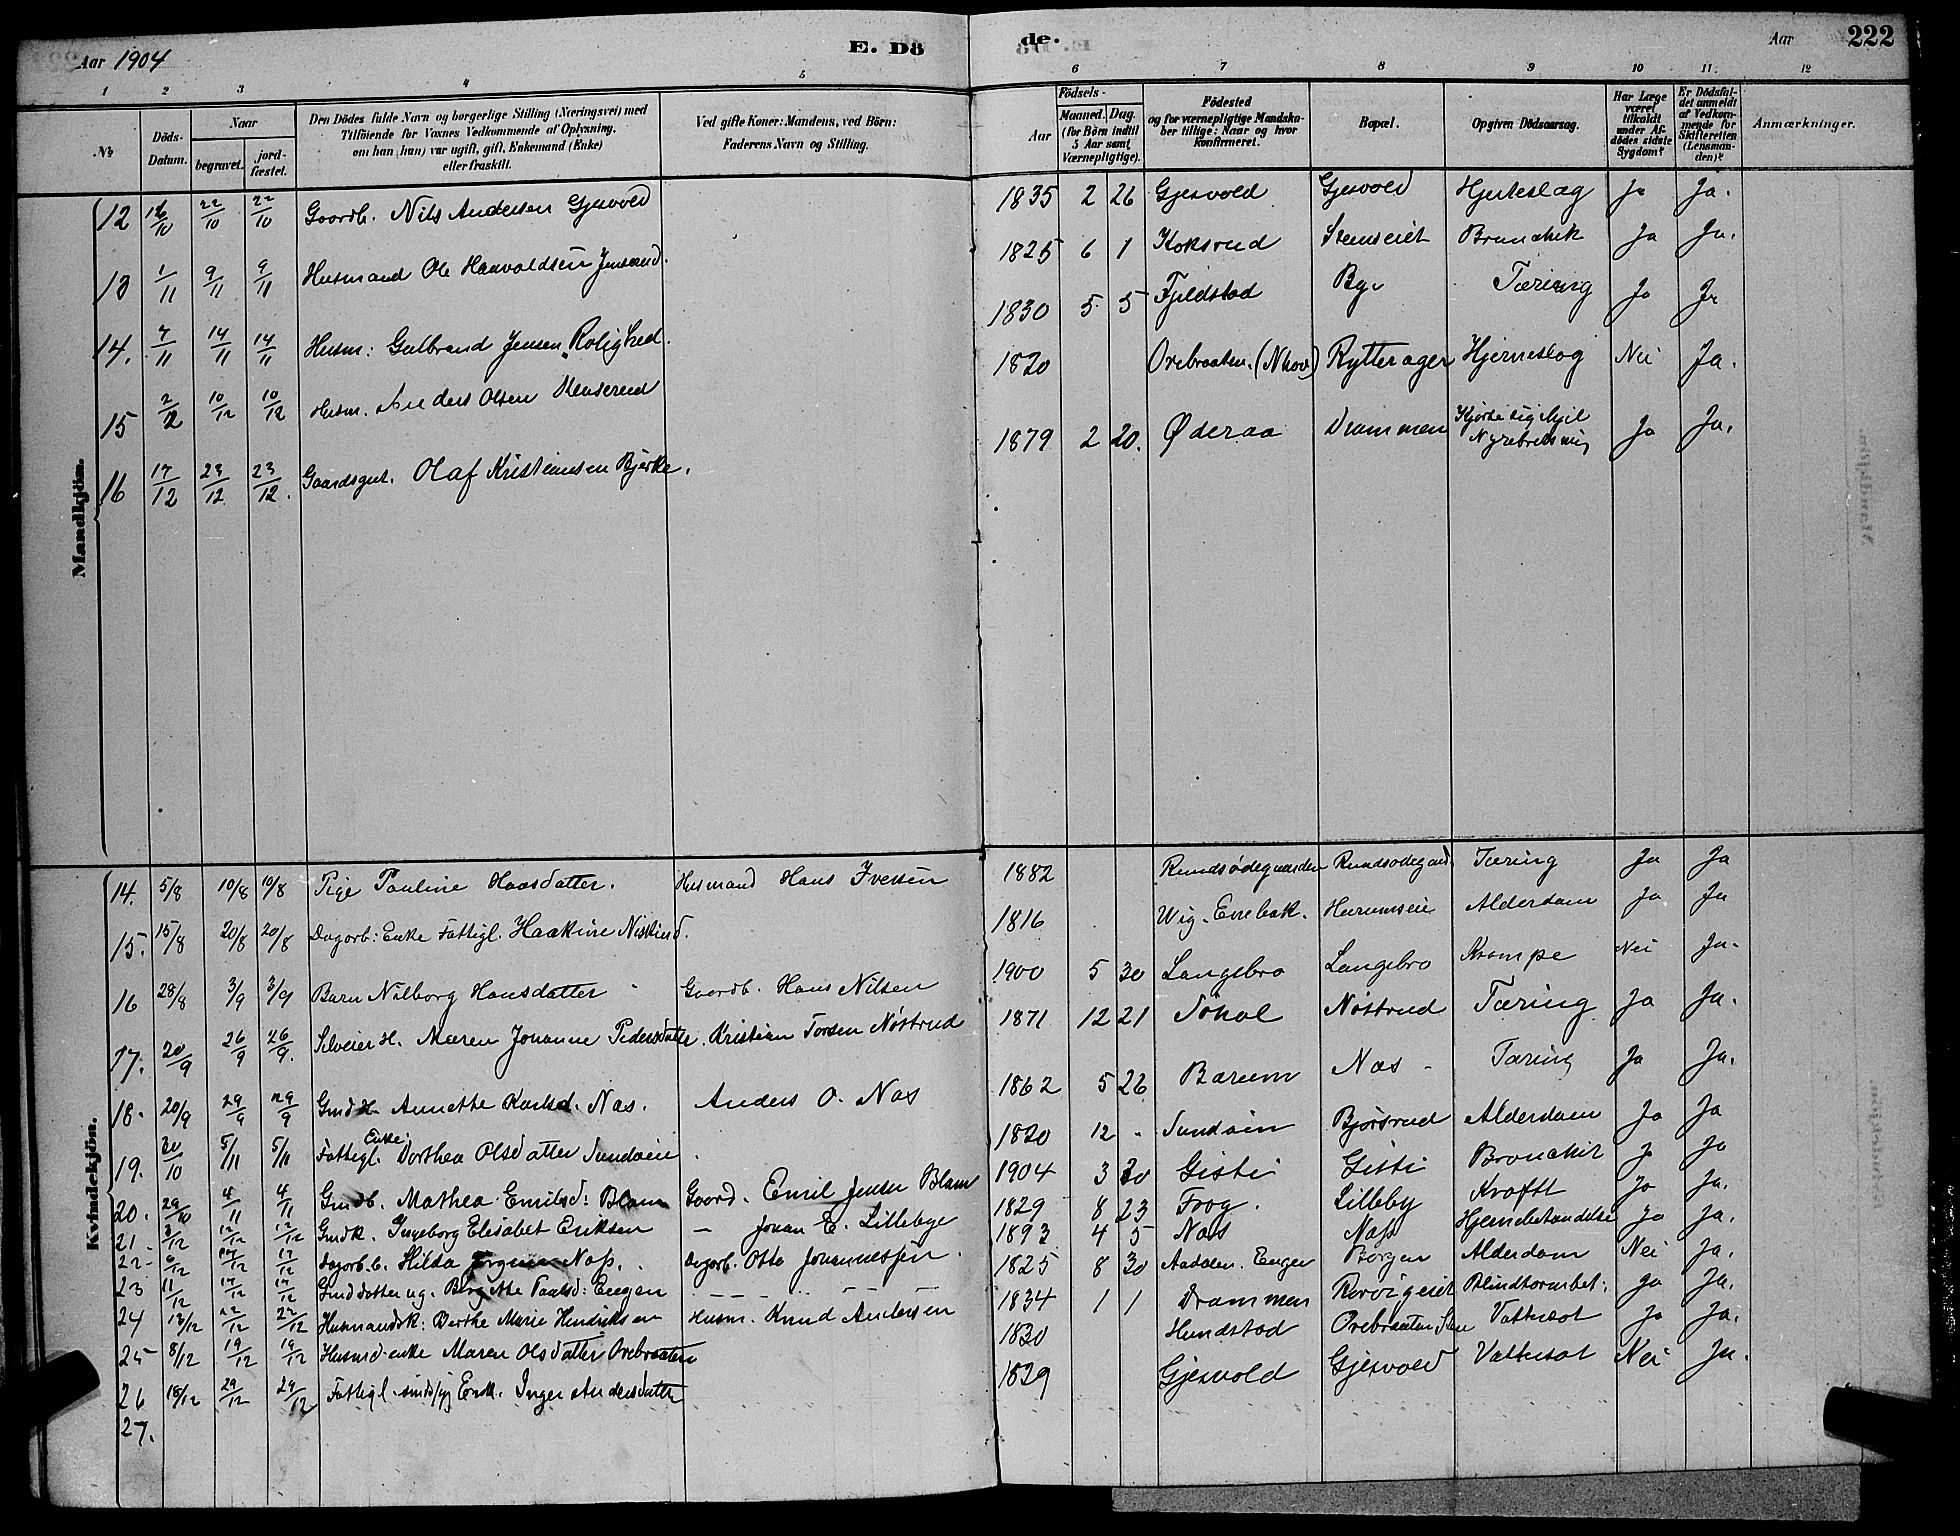 Aar 1904
E. Dö
de.
Aar
222
1 2 3 4 5 6 7 8 9 10 11. 12
No.
Döds-Datum.
Naar
begravet.
jord-fæstet.
Den Dödes fulde Navn og borgerlige Stilling (Næringsvei) med
Tilföiende for Voxnes Vedkommende af Oplysning,
om han (hun) var ugift, gift, Enkemand (Enke)
eller fraskilt.
Ved gifte Koner: Mandens, ved Börn:
Faderens Navn og Stilling.
Födsels-
Aar
Maaned. Dag.
(for Börn indtil
5 Aar samt
Værnepligtige).
Födested
og for værnepligtige Mandska-
ber tillige: Naar og hvor
konfirmeret.
Bopæl.
Opgiven Dödsaarsag.
Har Læge
været
tilkaldt
under Af-
dödes sidste
Sygdom?
Er Dödsfal-
det anmeldt
af Vedkom-
mende for
Skifteretten
(Lensman-
den)?
Anmærkninger.
Mandkjön.
12 16/10 22/10 22/10 Gaardb. Nils Andersen Gjesvold 1835 2 26 Gjesvold Gjesvold Hjerteslag Ja Ja.
13 1/11 9/11 9/11 Husmand Ole Haavaldsen 1825 6 1 Koksrud Stenseiet Bronchit Ja Ja.
14. 7/11 14/11 14/11 Husm: Gulbrand Jensen Rolighed. 1830 5 5 Fjeldstad By Tæring Ja Ja
15 2/12 10/12 10/12 Husm. Anders Olsen 1820 Orebraaten. (Nhov) Rytterager Hjerneslag Nei Ja.
16 17/12 23/12 23/12. Gaardsgut. Olaf Kristiansen Bjerke. 1879 2 20. Øderaa Drammen Ja Ja.
Kvindekjön.
14. 5/8 10/8 10/8 Pige Pauline Hansdatter. Husmand Hans Iversen 1882 Rundsødegaarden Rundsødegaard. Tæring Ja Ja
15. 15/8 20/8 20/8 Dagarb: Enke Fattigl. Haakine 1816 Wig. Enebak. Hurumseie Alderdom Ja Ja
16 28/8 3/9 3/9 Barn Nilborg Hansdatter Gaardb. Hans Nilsen 1900 5 30 Langebro Langebro Krampe Nei Ja.
17. 20/9 26/9 26/9. Selveier H. Maren Johanne Pedersdatter. Kristian Torsen Nøstrud 1871 12 21 Søhol Nøstrud Tæring Ja Ja.
18. 20/9 29/9 29/9 Gmd H. Annette Karlsd. Næs. Anders O. Næs 1862 5 26 Bærum Næs Tæring Ja Ja.
19. 30/10 5/11 5/11 Fattigl. Enke. Dorthea Olsdatter Sundøen 1820 12 Sundøin Bjørsrud Alderdom Ja Ja
20. 29/10 4/11 4/11 Gmdb. Mathea Emilsd: Blom Gaard. Emil Jensen Blom 1904 3 30 Gisti Gisti Bronchit Ja Ja
21 3/12 12/12 12/12 Gmdk. Ingeborg Elisabet Eriksen – Johan E. Lillebye 1829 8 23 Frog. Lilleby Kræft Ja Ja.
22- 6/12 17/12 17/12 Dagarb. b. Hilda Næss. Dagarb. Otto Johannessen. 1893 4 5 Næs Næss Hjernebetændelse Ja Ja.
23 11/12 17/12 17/12 Gmddatter ug. Birgitte Paulsd: Engen 1825 8 30 Aadalen. Enger Borgen Alderdom Nei Ja.
24 12/12 22/12 22/12 Husmandsk: Berthe Marie Hendriksen Husm. Knud Andersen 1834 1 1 Drammen Ja Ja.
25 8/12 19/12 19/12 Husmd. enke Maren Olsdatter Orebraaten 1830 Hundstad Orebraaten Vattersot Ja Ja.
26 18/12 29/12 29/12 Fattigl. Enk. Inger Andersdatter 1829 Gjesvold Gjesvold Vattersot Nei Ja.
27.